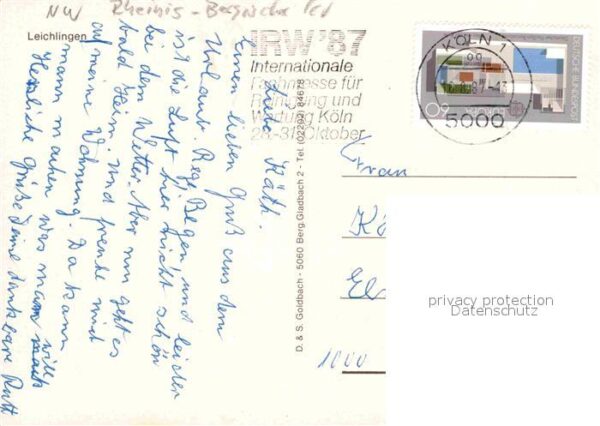 NW Rheinis-Bergischer
Leichlingen
Liebe Käth.
Einen lieben Gruß aus dem
Urlaub. Regen, Regen und leider
ist die Luft hier nicht schön
bei dem Wetter. Aber nun geht es
bald Heim und freute mich
auf meine Wohnung. Da kann
mann machen was mann will
Herzliche Grüße Deine dankbare Ruth
D. & S. Goldbach - 5060 Berg. Gladbach 2 - Tel. (02202) 84678
IRW '87
Internationale
Fachmesse für
Reinigung und
Wartung Köln
28.-31. Oktober
KÖLN 1
87-13
5000
DEUTSCHE BUNDESPOST
60
EUROPA
1000
privacy protection
Datenschutz